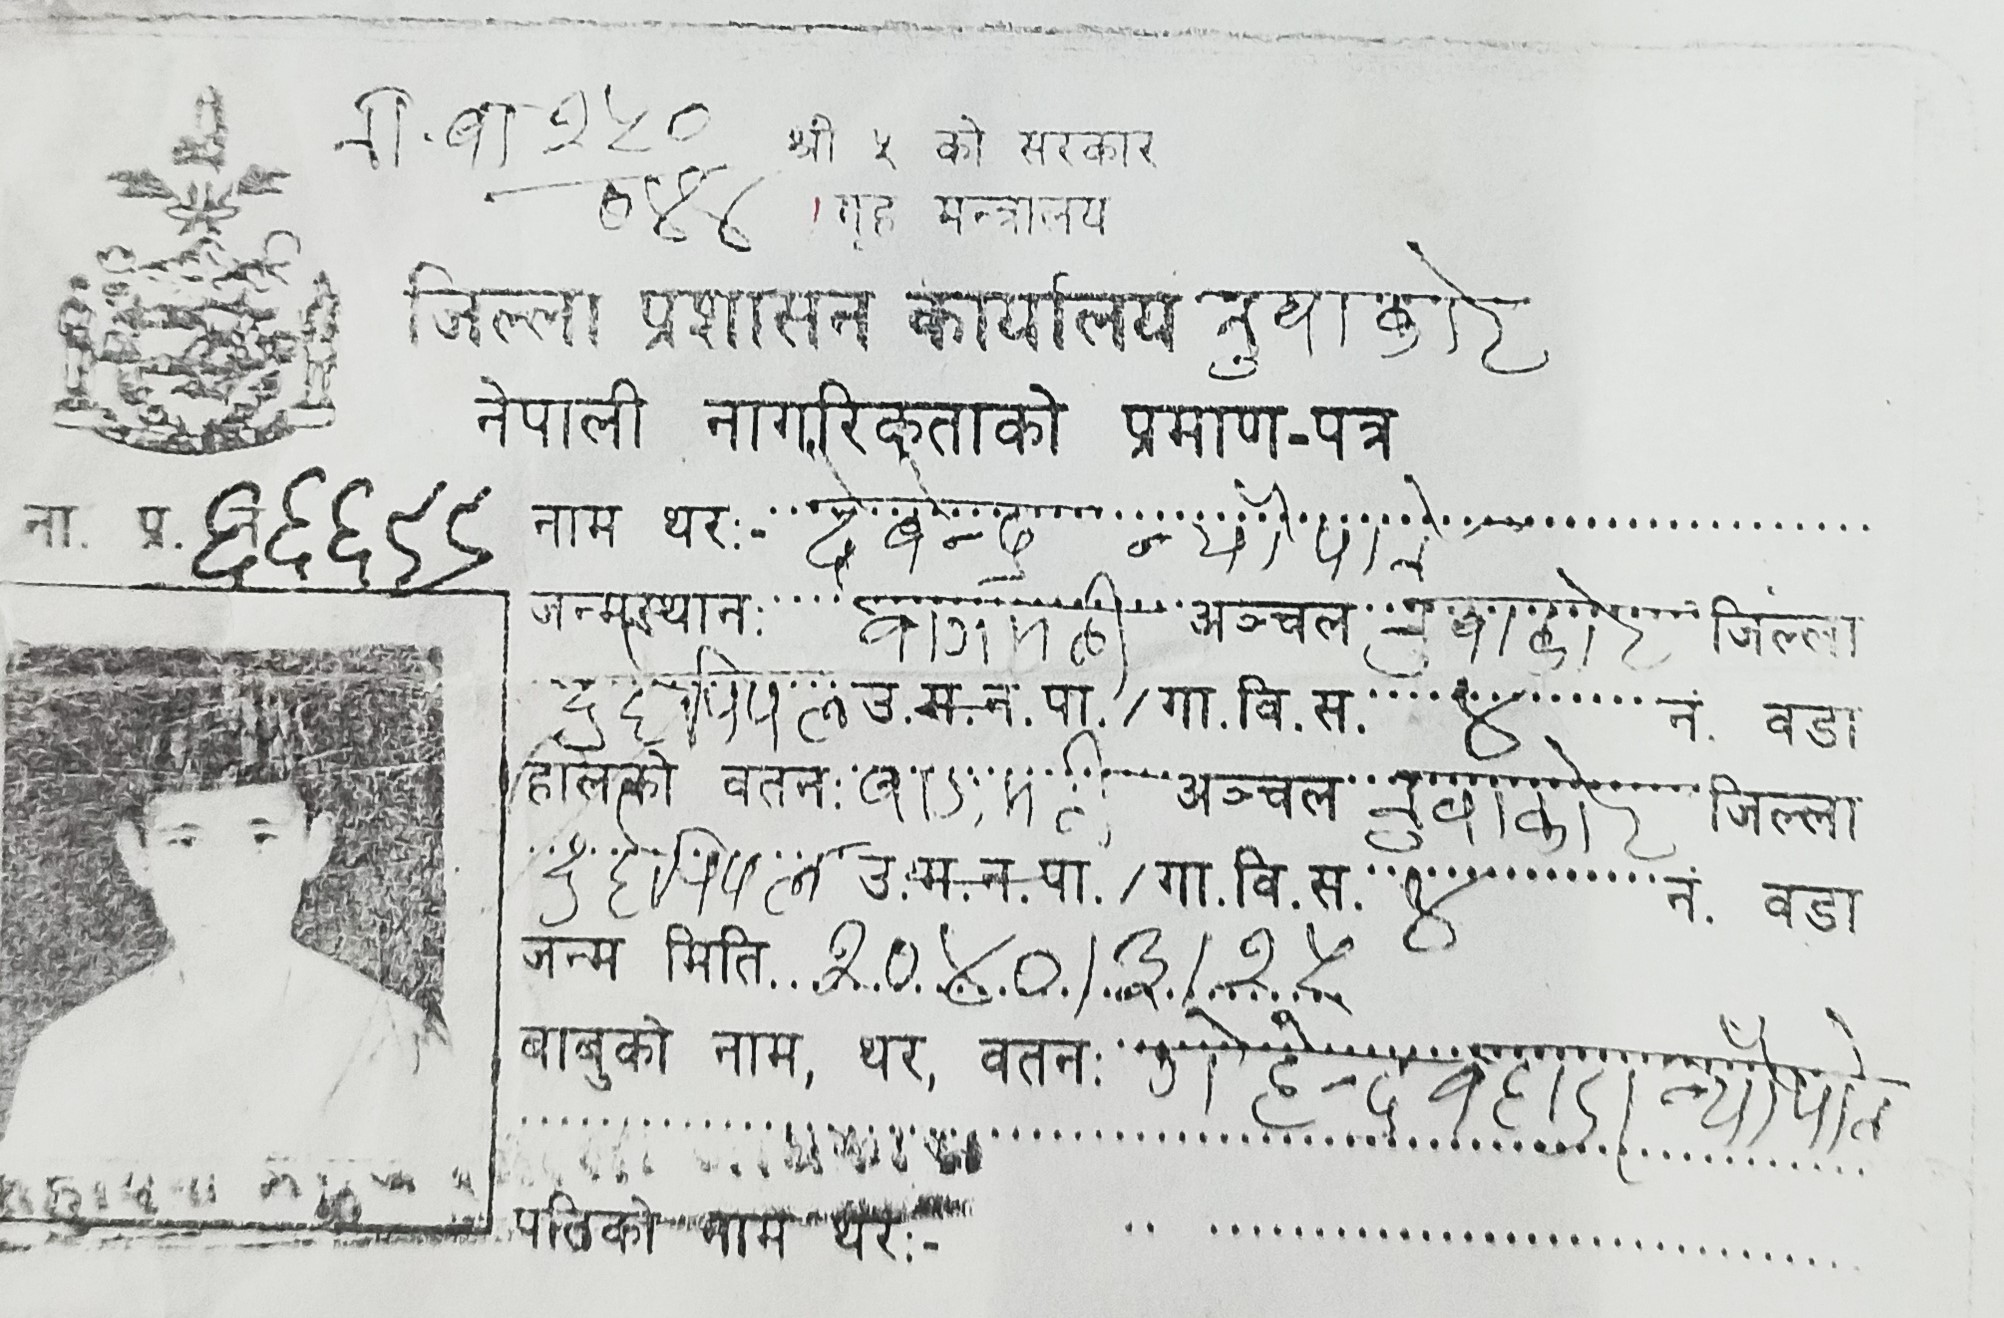 श्री ५ को सरकार
२५०
०४४ गृह मन्त्रालय
जिल्ला प्रशासन कार्यालय नुवाकोट
नेपाली नागरिकताको प्रमाण-पत्र
ना. प्र. नं ६६६९९ नाम थर:- देवेन्द्र न्यौपाने
जन्मस्थान: बागमती अञ्चल नुवाकोट जिल्ला
दुहेपिपल उ.म.न.पा./गा.वि.स. ४ नं. वडा
हालको वतन: बागमती अञ्चल नुवाकोट जिल्ला
उ.म.न.पा./गा.वि.स. ४ नं. वडा
जन्म मिति २०४०।३।२५
बाबुको नाम, थर, वतन: बहादुर न्यौपाने
पतिको नाम थर:-